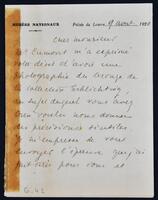 MUSÉES NATIONAUX
Palais du Louvre, 19 avril 1920
Cher monsieur
Mr Cumont m'a exprimé
votre désir d'avoir une
photographie du bronze de
la collection Schlichting,
au sujet duquel vous avez
bien voulu nous donner
des précisions si utiles.
Je m'empresse de vous
envoyer l'épreuve que j'ai
fait pour vous et
G.42